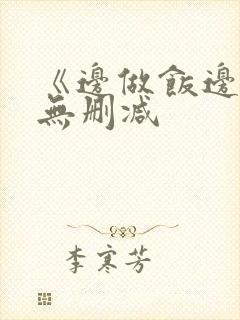 《邊做飯邊
無删减
李寒芳